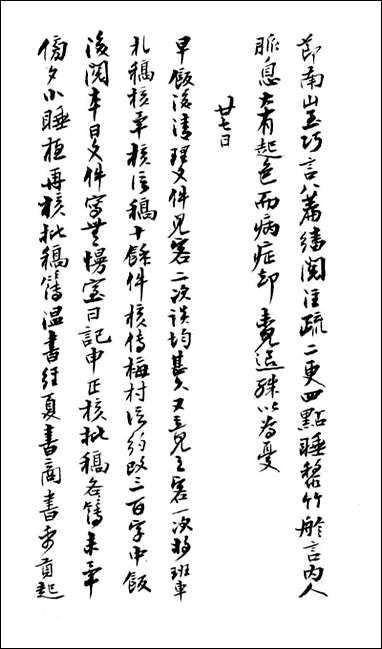 節南山至巧言八篇繙閱注疏二更四點睡黎竹舲言內人
脈息大有起色而病症卻未見退殊以為憂
廿七日
早飯後清理文件見客二次談均甚久又立見之客一次將班車
札稿核畢核信稿十餘件核傅梅村信約改二百字中飯
後閱本日文件寫莫幔室日記申正核批稿各簿未畢
傍夕小睡夜再核批稿簿溫書經夏書商書禹貢起